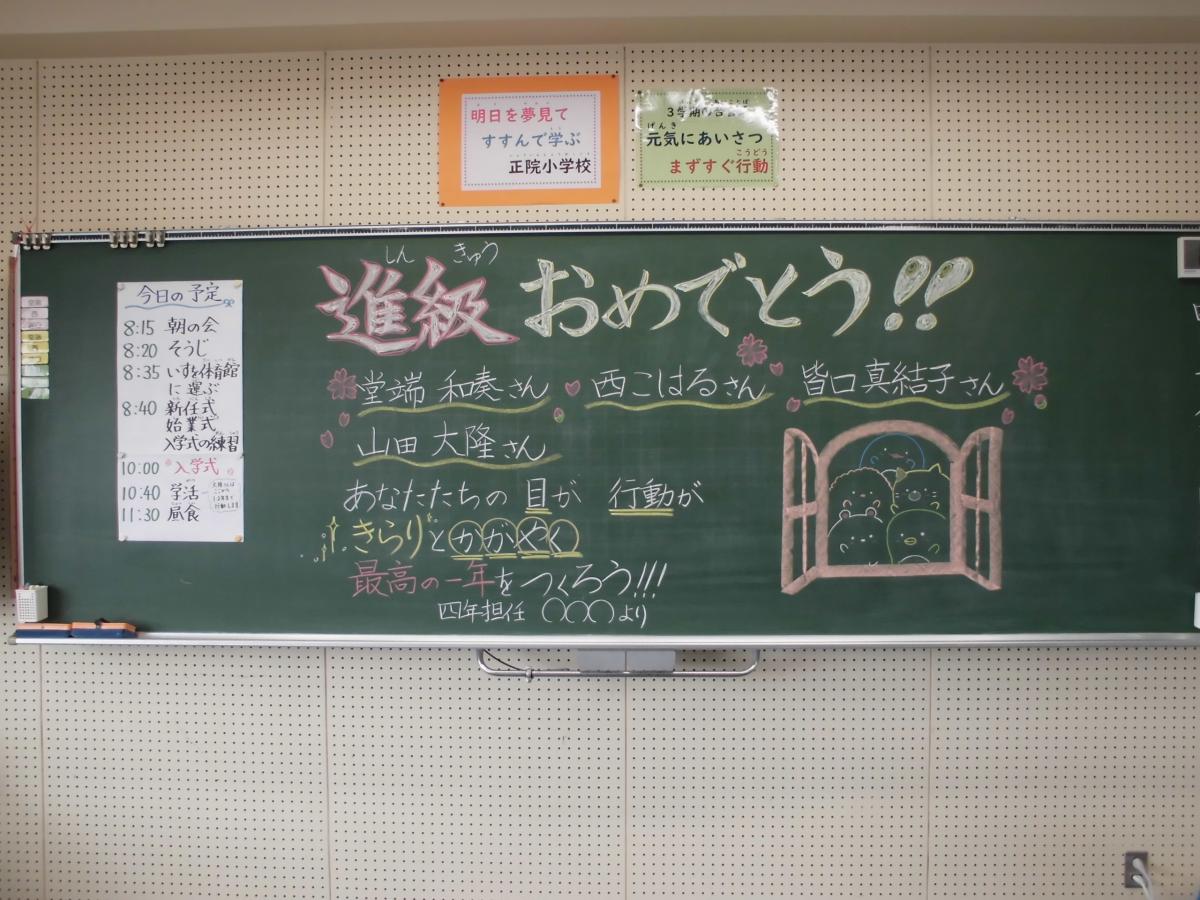 明日を夢見て
すすんで学ぶ
正院小学校
元気にあいさつ
げんき
まずすぐ行動
こうどう
今日の予定
8:15 朝の会
8:20 そうじ
8:35 いすを体育館
に運ぶ
8:40 新任式
始業式
入学式の練習
10:00 入学式
10:40 学活
11:30 昼食
しん きゅう
進級おめでとう!!
堂端 和奏さん 西こはるさん 皆口真結子さん
山田 大隆さん
あなたたちの 目が 行動が
きらりとかがやく
最高の一年をつくろう!!!
四年担任 〇〇〇より